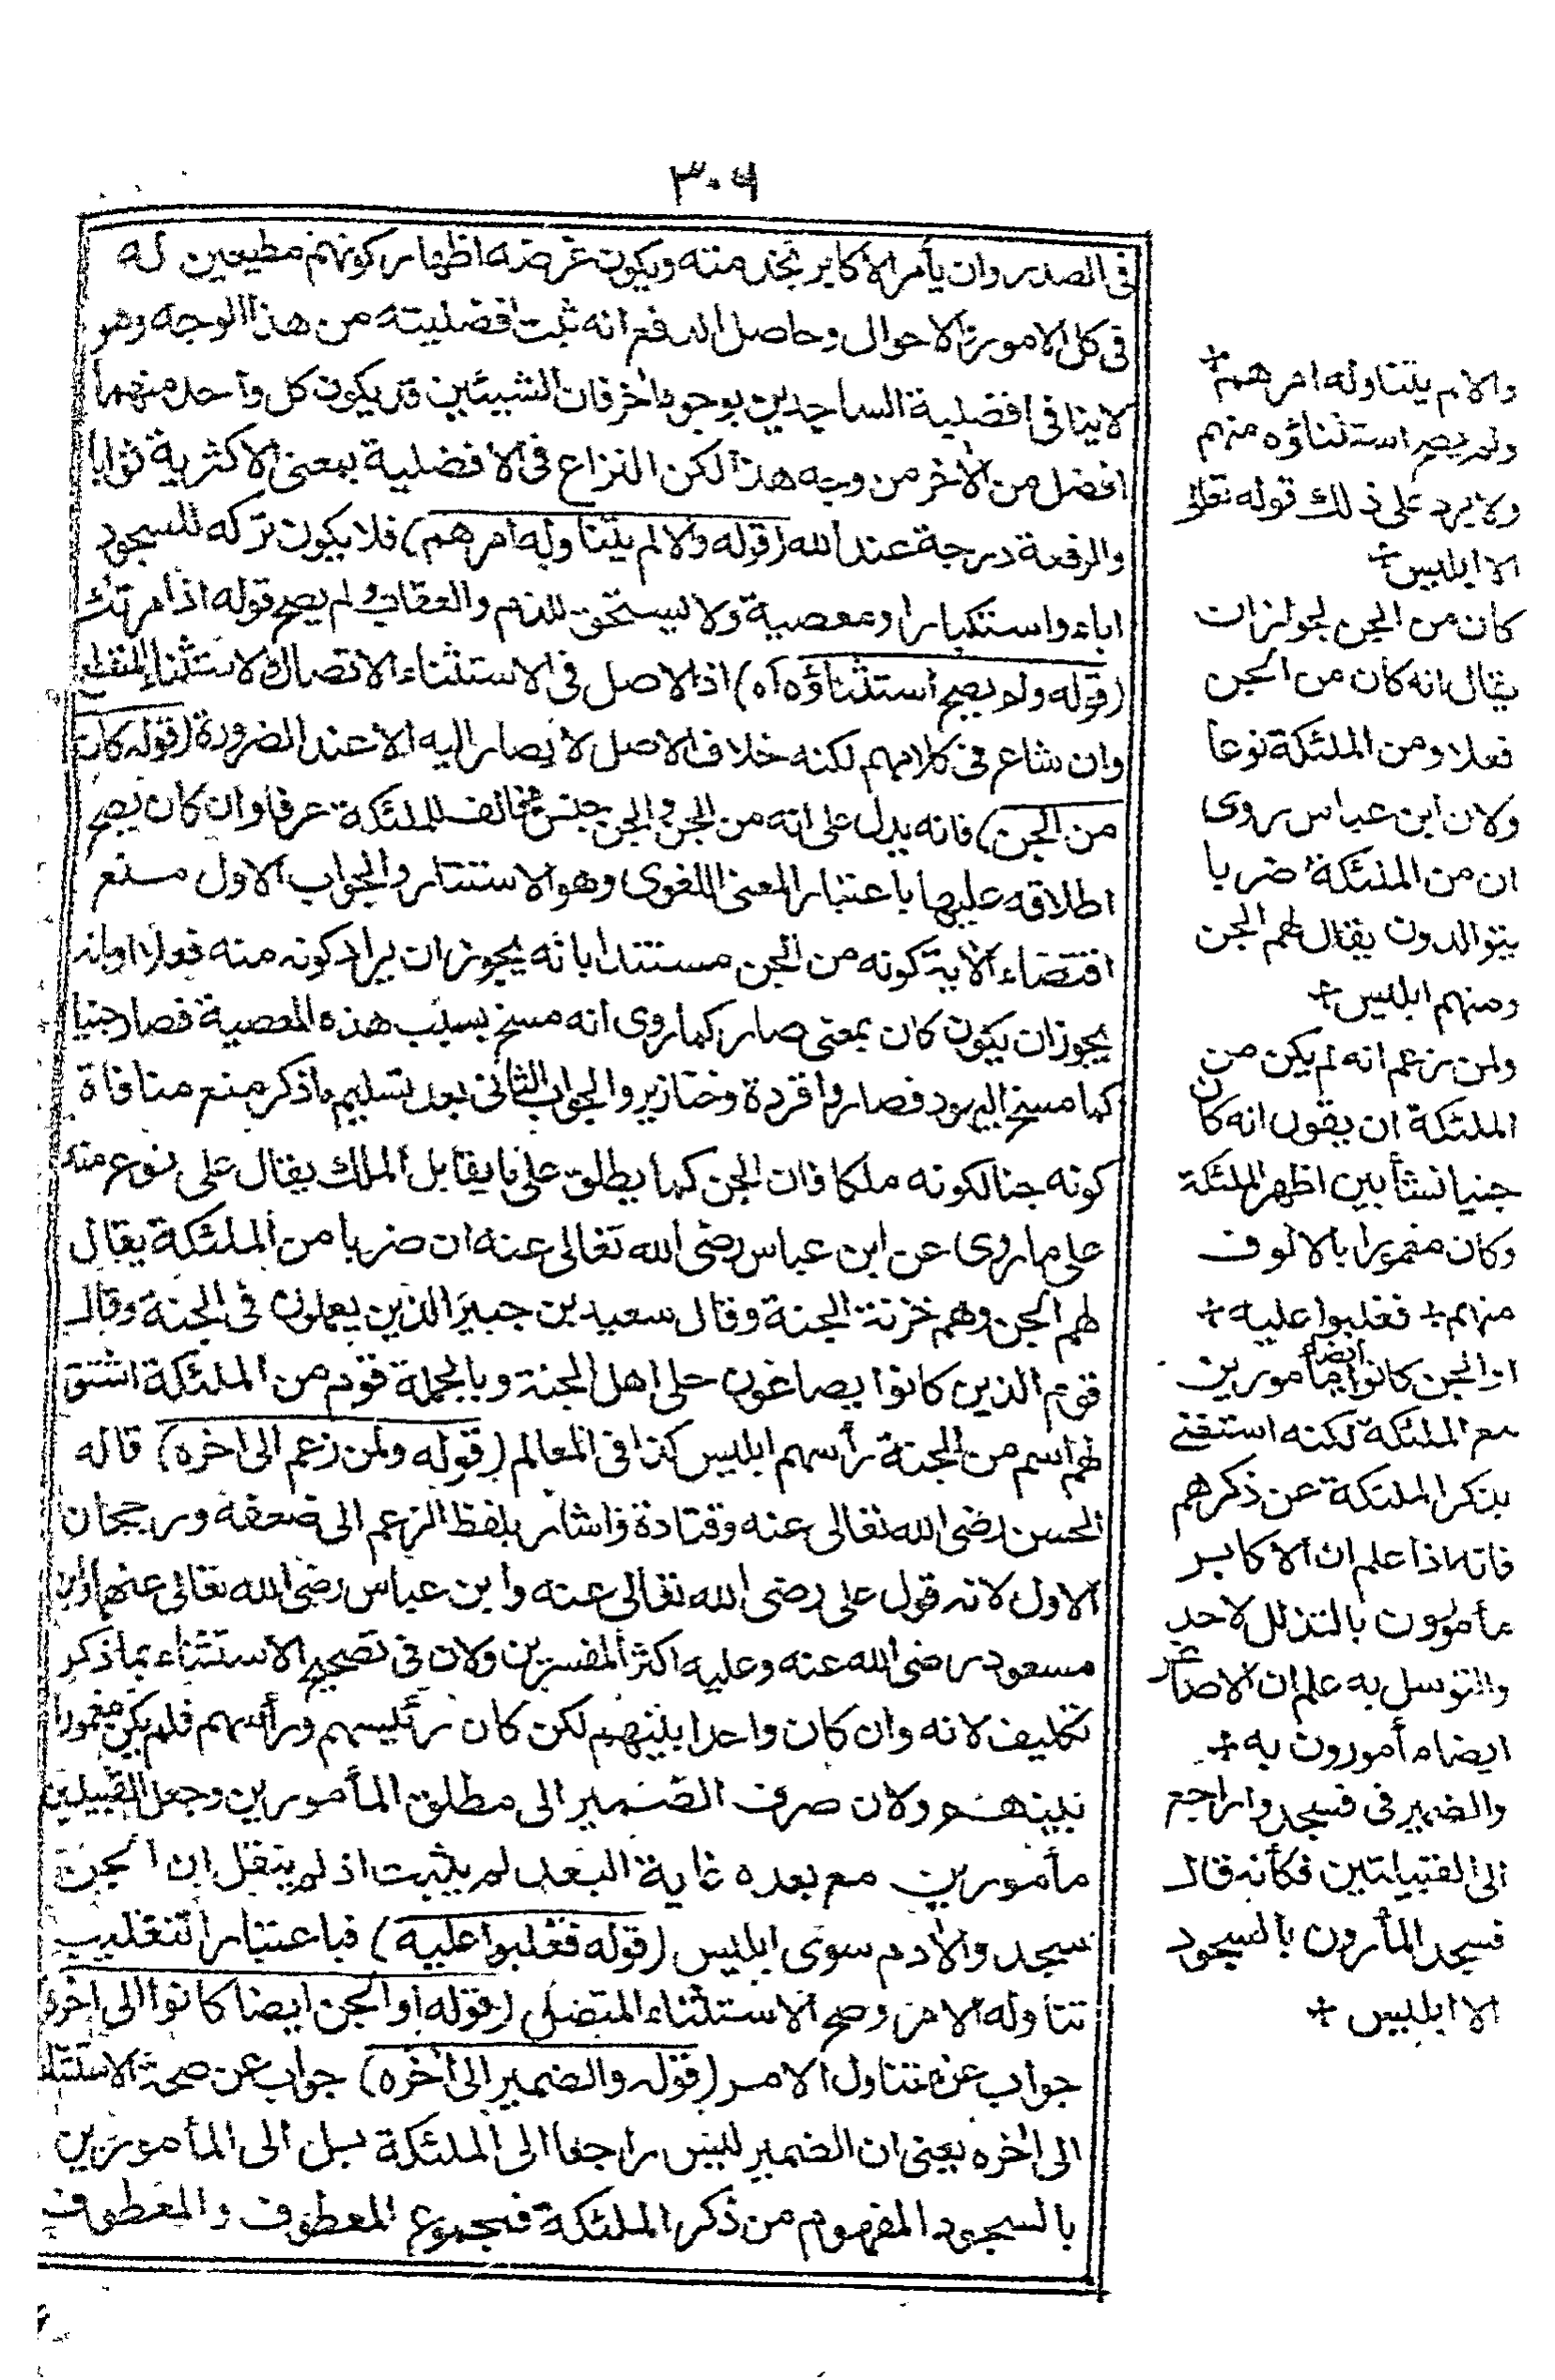 ٣٠٦
فى الصدر وان يأمر الاكابر بخدمته ويكون غرضه اظهار كونهم مطيعين له
فى كل الامور والاحوال وحاصل الدفع انه ثبت افضليته من هذا الوجه وهو
لاينافى افضلية الساجدين بوجوه اخر فان الشيئين قد يكون كل واحد منهما
افضل من الأخر من وجه هذا لكن النزاع فى الافضلية بمعنى الاكثرية ثوابا
والرفعة درجة عند الله (قوله والا لم يتناوله امرهم) فلا يكون تركه للسجود
اباء واستكبارا ومعصية ولا يستحق للذم والعقاب ولم يصح قوله اذ امرتك
(قوله ولم يصح استثناؤه اه) اذ الاصل فى الاستثناء الاتصال لا استثناء المنقطع
وان شاع فى كلامهم لكنه خلاف الاصل لا يصار اليه الا عند الضرورة (قوله كان
من الجن) فانه يدل على انه من الجن والجن جنس مخالف للملئكة عرفا وان كان يصح
اطلاقه عليها باعتبار المعنى اللغوى وهو الاستتار والجواب الاول منع
اقتضاء الأية كونه من الجن مستندا بانه يجوز ان يراد كونه منه فعلا او انه
يجوز ان يكون كان بمعنى صار كما روى انه مسخ بسبب هذه المعصية فصار جنيا
كما مسخ اليهود فصاروا قردة وخنازير والجواب الثانى بعد تسليم ما ذكر منع منافاة
كونه جنا لكونه ملكا فان الجن كما يطلق على ما يقابل الملك يقال على نوع منه
على ما روى عن ابن عباس رضى الله تعالى عنه ان ضربا من الملئكة يقال
لهم الجن وهم خزنة الجنة وقال سعيد بن جبير الذين يعملون فى الجنة وقال
قوم الذين كانوا يصاغون حلى اهل الجنة وبالجملة قوم من الملئكة اشتق
لهم اسم من الجنة رأسهم ابليس كذا فى المعالم (قوله ولمن زعم الى اخره) قاله
الحسن رضى الله تعالى عنه وقتادة واشار بلفظ الزعم الى ضعفه ورجحان
الاول لانه قول على رضى الله تعالى عنه وابن عباس رضى الله تعالى عنهما وابن
مسعود رضى الله عنه وعليه اكثر المفسرين ولان فى تصحيح الاستثناء بما ذكر
تكليف لانه وان كان واحدا بينهم لكن كان رئيسهم ورأسهم فلم يكن مغمورا
بينهم ولان صرف الضمير الى مطلق المأمورين وجعل القبيلين
مأمورين مع بعده غاية البعد لم يثبت اذ لم ينقل ان الجن
سجد والأدم سوى ابليس (قوله فغلبوا عليه) فباعتبار التغليب
تناوله الامر وصح الاستثناء المتصل (قوله او الجن ايضا كانوا الى اخره
جواب عن تناول الامر (قوله والضمير الى اخره) جواب عن صحة الاستثناء
الى اخره يعنى ان الضمير ليس راجعا الى الملئكة بل الى المأمورين
بالسجود المفهوم من ذكر الملئكة فمجموع المعطوف والمعطوف
والا لم يتناوله امرهم
ولم يصح استثناؤه منهم
ولا يرد على ذلك قوله تعالى
الا ابليس
كان من الجن لجواز ان
يقال انه كان من الجن
فعلا ومن الملئكة نوعا
ولان ابن عباس روى
ان من الملئكة ضربا
يتوالدون يقال لهم الجن
ومنهم ابليس
ولمن زعم انه لم يكن من
الملئكة ان يقول انه كان
جنيا نشأ بين اظهر الملئكة
وكان مغمورا بالالوف
منهم فغلبوا عليه
او الجن كانوا ايضا مأمورين
مع الملئكة لكنه استغنى
بذكر الملئكة عن ذكرهم
فانه اذا علم ان الاكابر
مأمورون بالتذلل لاحد
والتوسل به علم ان الاصاغر
ايضا مأمورون به
والضمير فى فسجدوا راجع
الى القبيلتين فكأنه قال
فسجد المأمرون بالسجود
الا ابليس